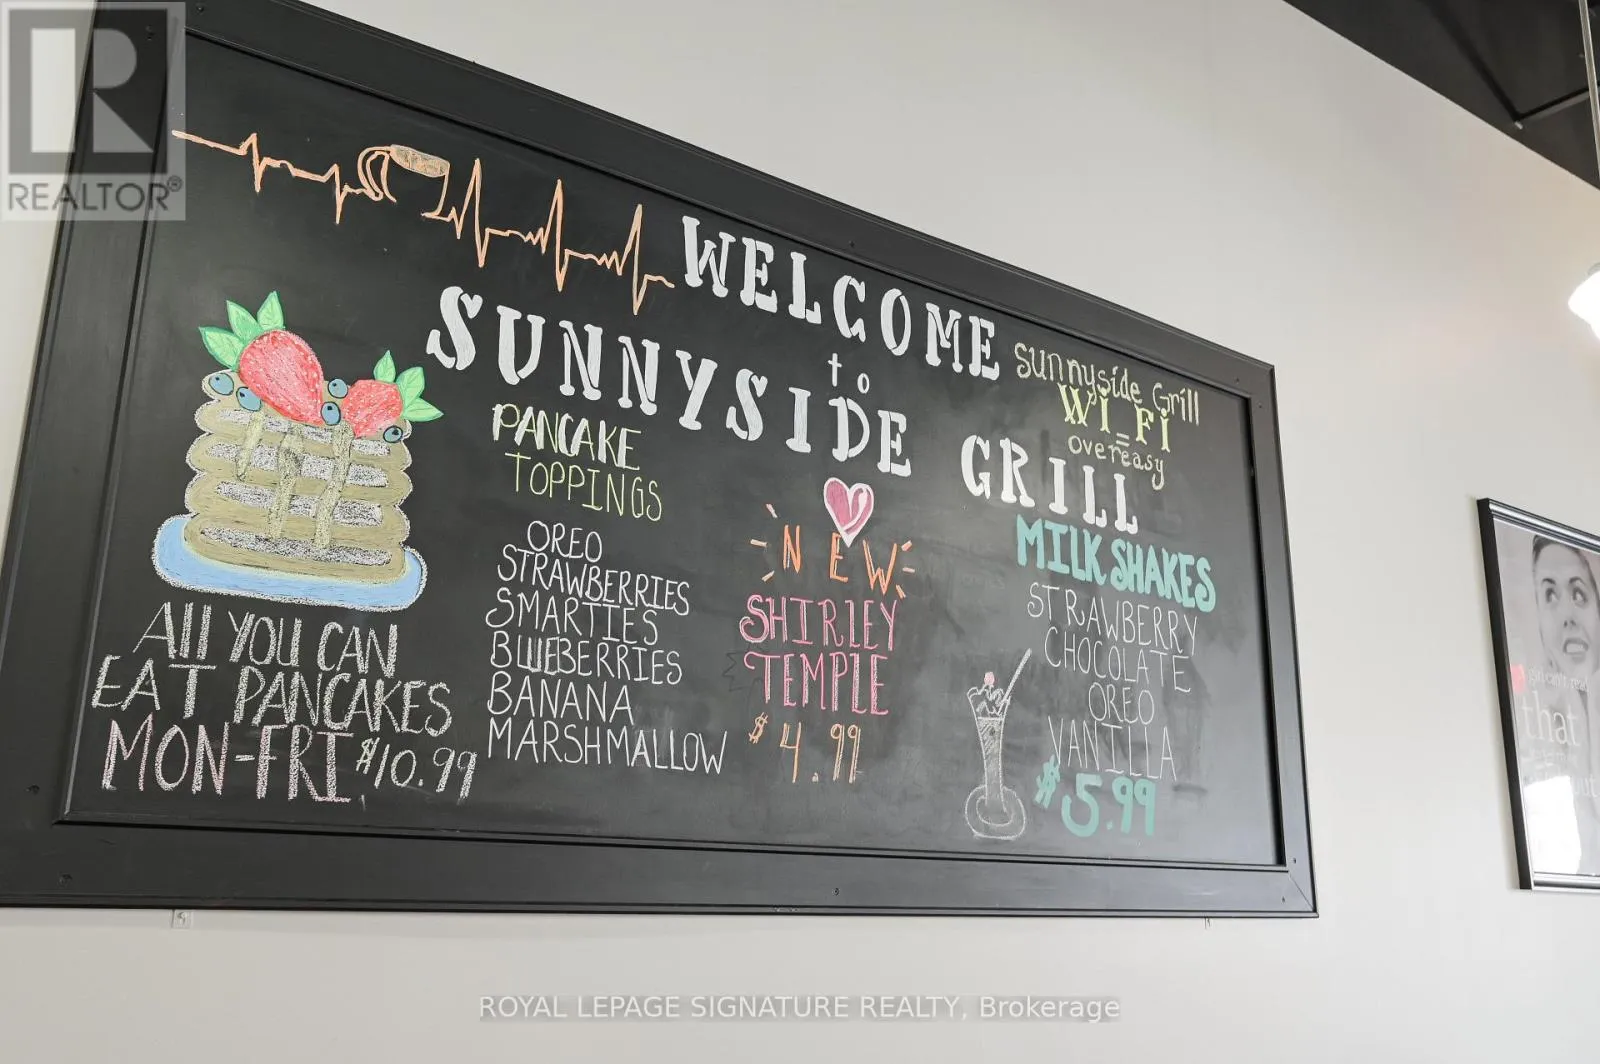 REALTOR®
WELCOME
to
SUNNYSIDE GRILL
sunnyside Grill
Wi-Fi
=
overeasy
PANCAKE
TOPPINGS
OREO
STRAWBERRIES
SMARTIES
BLUEBERRIES
BANANA
MARSHMALLOW
All YOU CAN
EAT PANCAKES
MON-FRI $10.99
NEW
SHIRLEY
TEMPLE
$4.99
MILKSHAKES
STRAWBERRY
CHOCOLATE
OREO
VANILLA
$5.99
that
ROYAL LEPAGE SIGNATURE REALTY, Brokerage